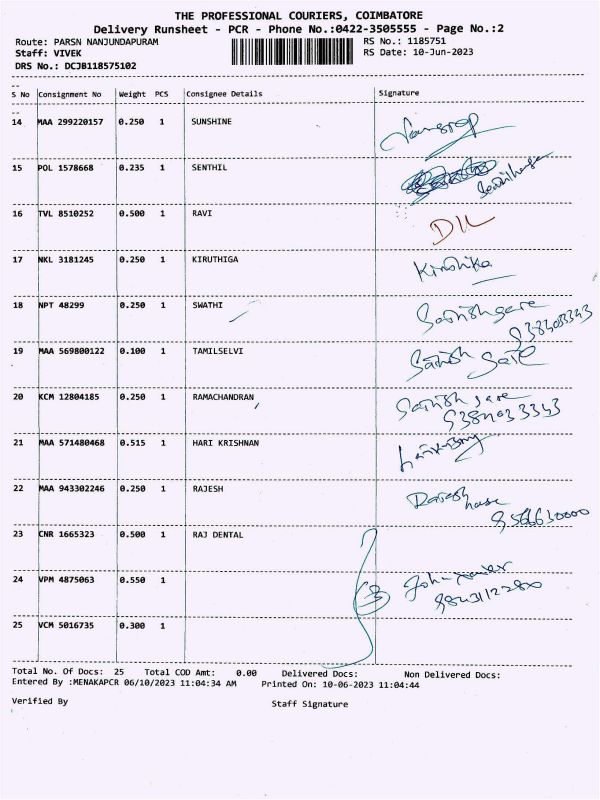 THE PROFESSIONAL COURIERS, COIMBATORE
Delivery Runsheet - PCR - Phone No.:0422-3505555 - Page No.:2
Route: PARSN NANJUNDAPURAM
RS No.: 1185751
Staff: VIVEK
RS Date: 10-Jun-2023
DRS No.: DCJB118575102
S No Consignment No Weight PCS Consignee Details Signature
14 MAA 299220157 0.250 1 SUNSHINE
15 POL 1578668 0.235 1 SENTHIL
16 TVL 8510252 0.500 1 RAVI
17 NKL 3181245 0.250 1 KIRUTHIGA Kirthika
18 NPT 48299 0.250 1 SWATHI
19 MAA 569800122 0.100 1 TAMILSELVI
20 KCM 12804185 0.250 1 RAMACHANDRAN
21 MAA 571480468 0.515 1 HARI KRISHNAN
22 MAA 943302246 0.250 1 RAJESH
house
23 CNR 1665323 0.500 1 RAJ DENTAL
24 VPM 4875063 0.550 1 John
25 VCM 5016735 0.300 1
Total No. Of Docs: 25 Total COD Amt: 0.00 Delivered Docs: Non Delivered Docs:
Entered By :MENAKAPCR 06/10/2023 11:04:34 AM Printed On: 10-06-2023 11:04:44
Verified By
Staff Signature